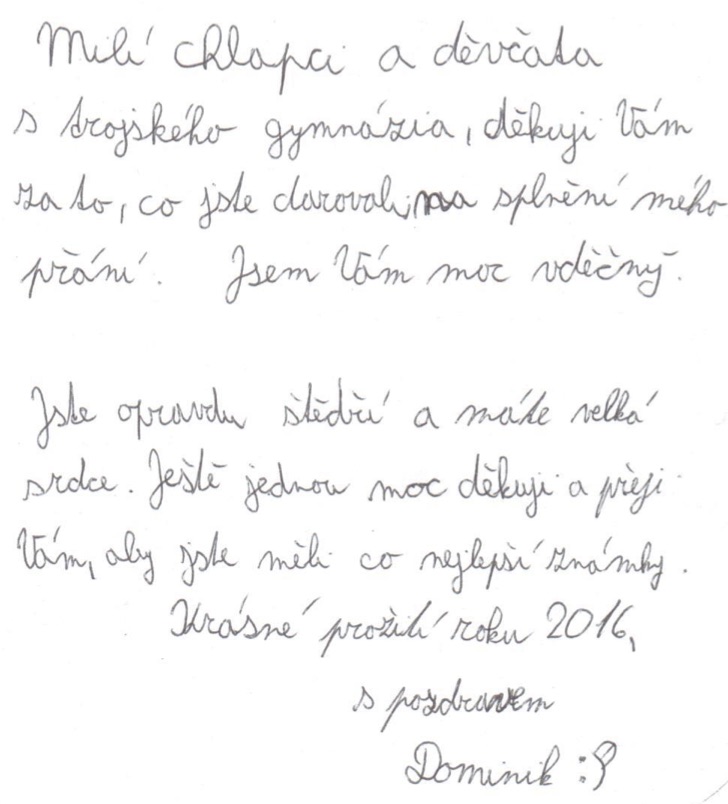 Milí chlapci a děvčata
s trojského gymnázia, děkuji Vám
za to, co jste darovali na splnění mého
přání. Jsem Vám moc vděčný.
Jste opravdu štědří a máte velká
srdce. Ještě jednou moc děkuji a přeji
Vám, aby jste měli co nejlepší známky.
Krásné prožití roku 2016,
s pozdravem
Dominik :P